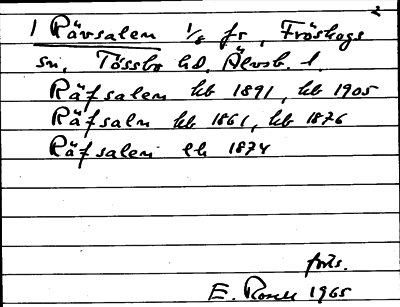 2
1 Rävsalen 1/8 fr, Fröskogs
sn, Tössbo hd, Älvsb. l.
Räfsalen kb 1891, kb 1905
Räfsaln kb 1861, kb 1876
Räfsalen lk 1874
forts.
E. Rosell 1965